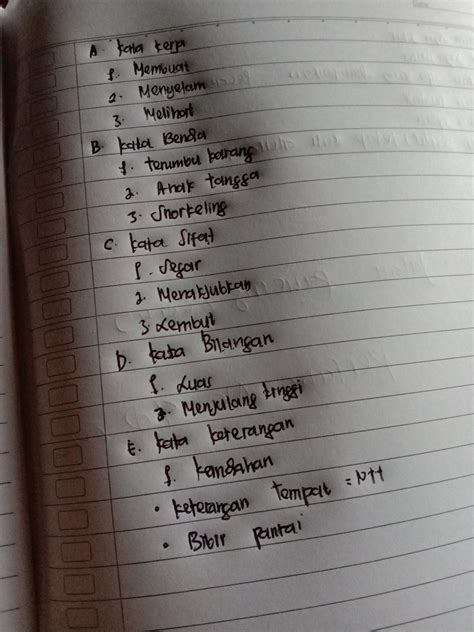 A. kata kerja
1. Membuat
2. Menyelam
3. Melihat
B. kata Benda
1. terumbu karang
2. Anak tangga
3. Snorkeling
C. kata Sifat
1. Segar
2. Menakjubkan
3. Lembut
D. kata Bilangan
1. Luas
2. Menjulang tinggi
E. kata keterangan
1. keindahan
• keterangan tempat = NTT
• Bibir pantai